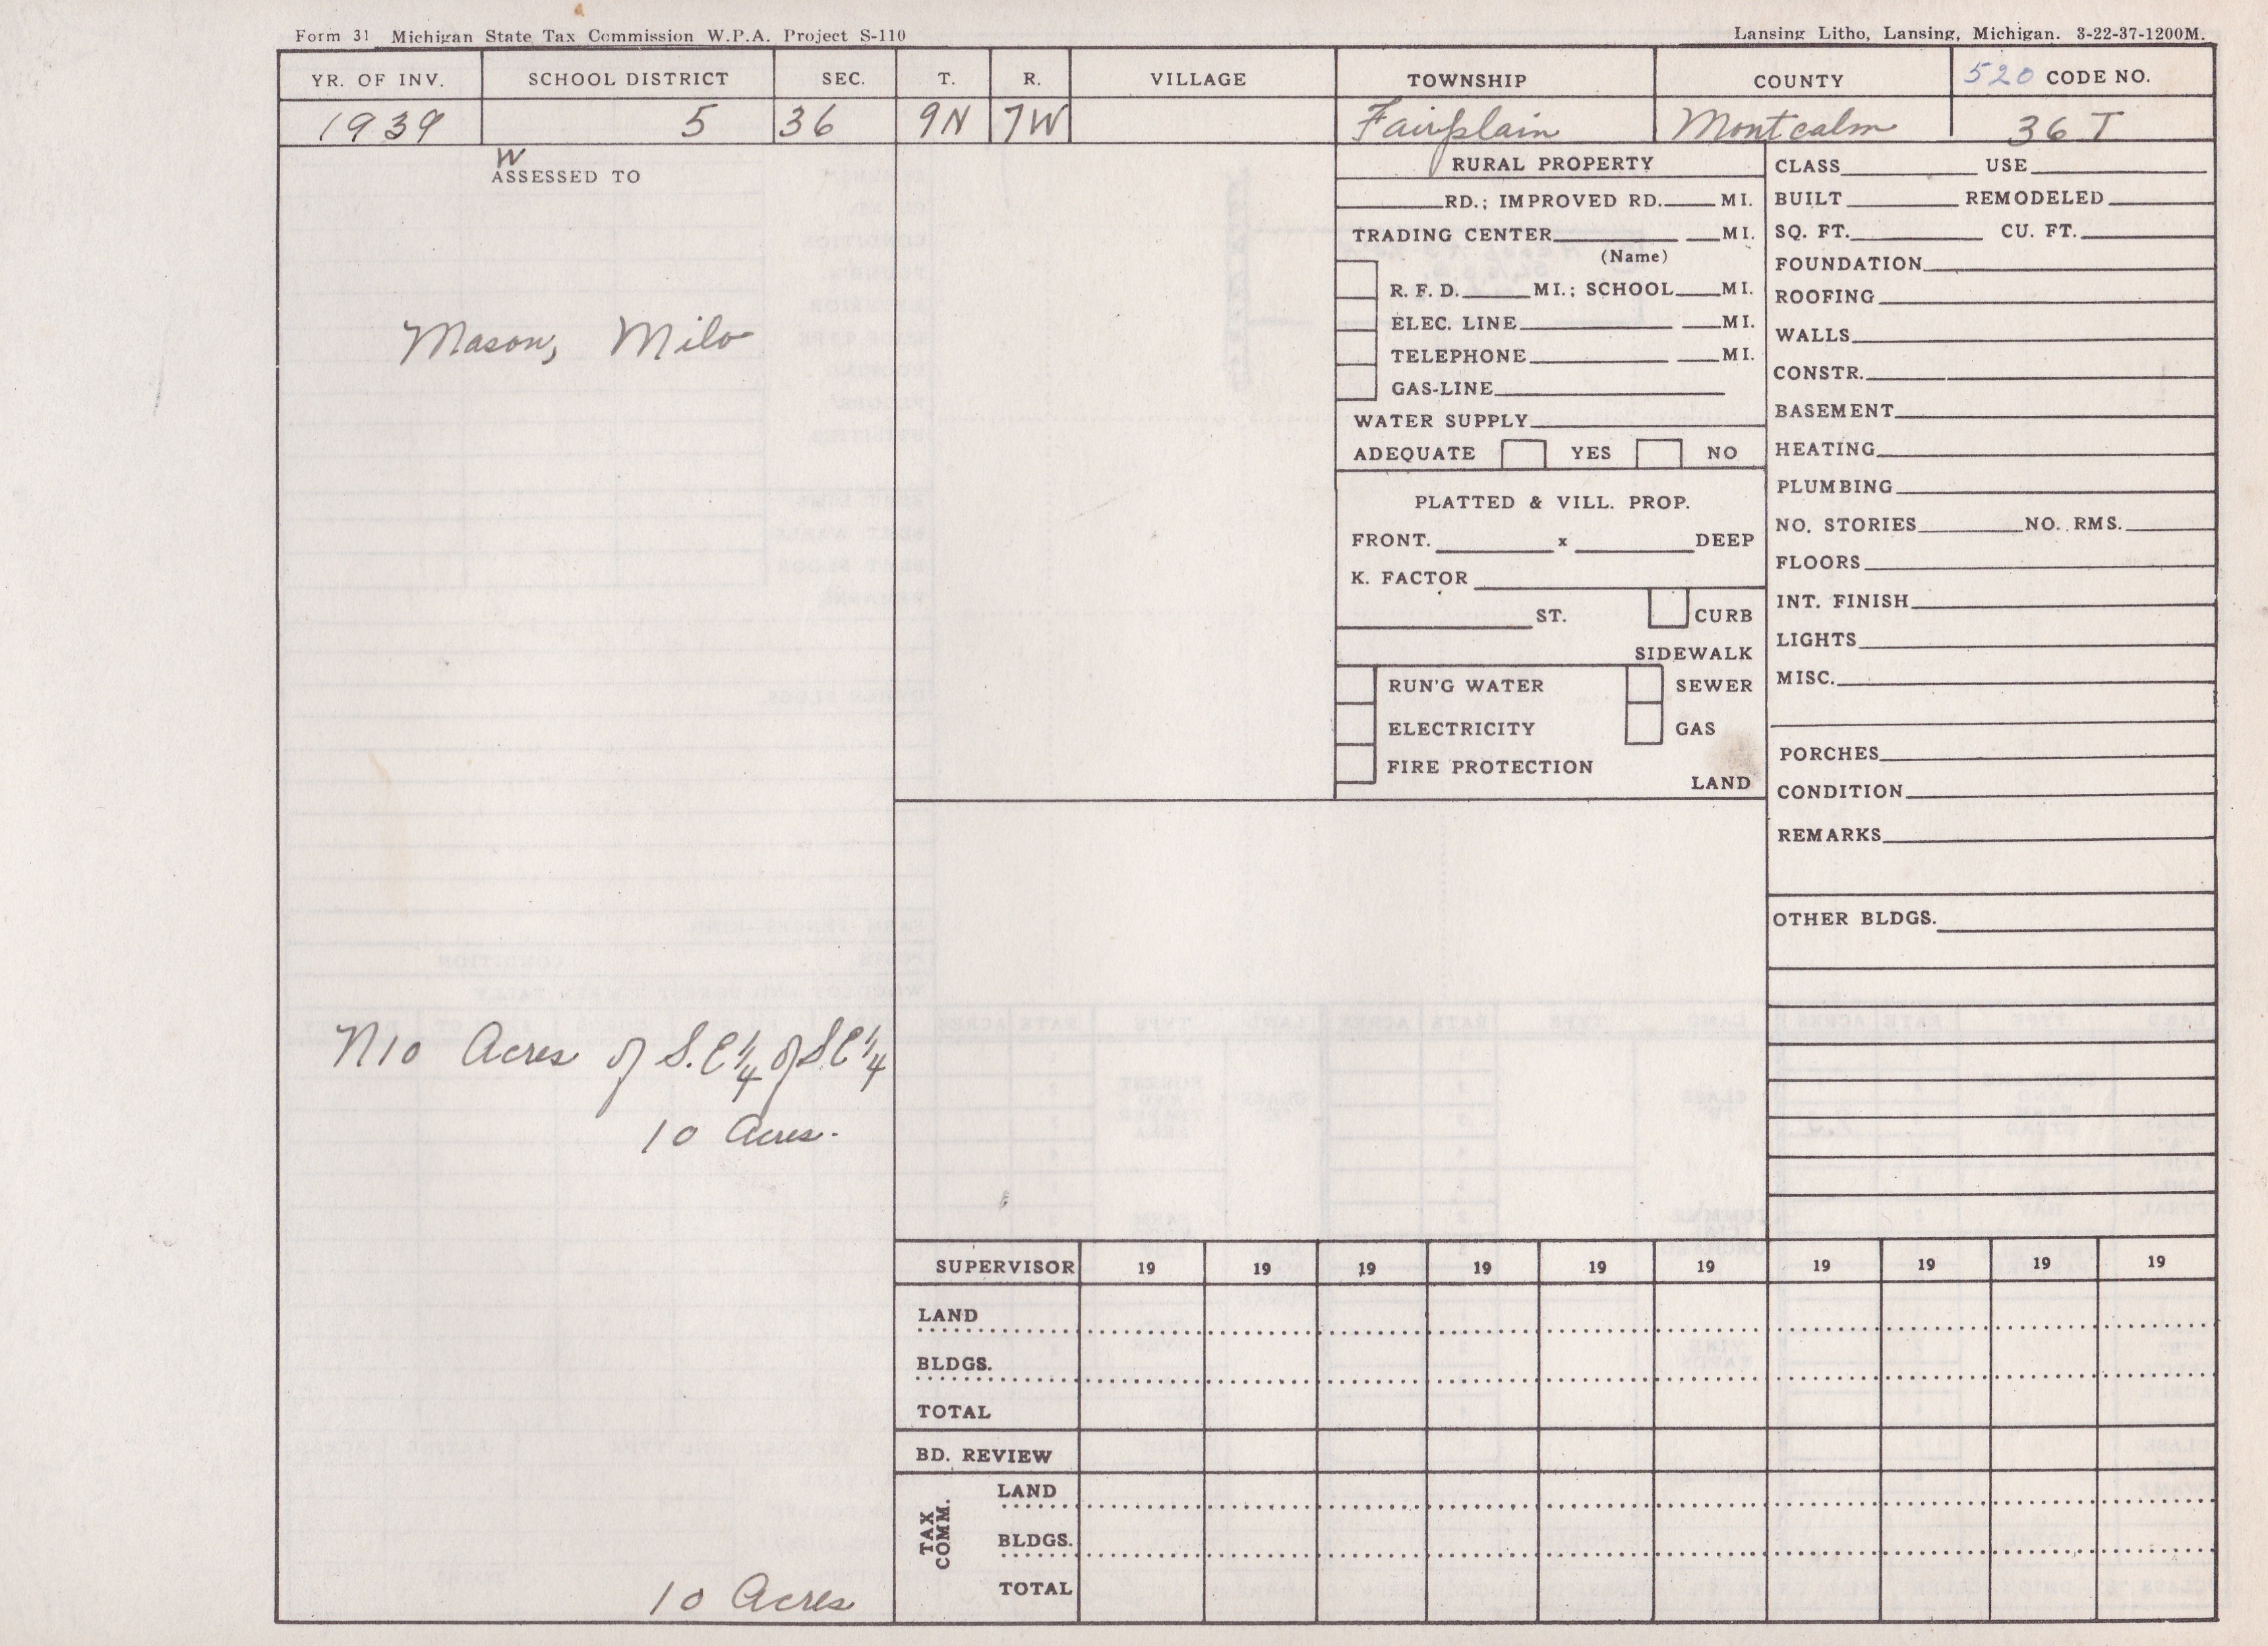 Form 31 Michigan State Tax Commission W.P.A. Project S-110
Lansing Litho, Lansing, Michigan. 3-22-37-1200M.
YR. OF INV. SCHOOL DISTRICT SEC. T. R. VILLAGE TOWNSHIP COUNTY 520 CODE NO.
1939 5 36 9N 7W Fairplain Montcalm 36 T
W
ASSESSED TO
Mason, Milo
N10 Acres of S.E 1/4 of SE 1/4
10 Acres.
10 Acres
RURAL PROPERTY
RD.; IMPROVED RD. MI.
TRADING CENTER MI.
(Name)
R. F. D. MI.; SCHOOL MI.
ELEC. LINE MI.
TELEPHONE MI.
GAS-LINE
WATER SUPPLY
ADEQUATE YES NO
PLATTED & VILL. PROP.
FRONT. x DEEP
K. FACTOR
ST. CURB
SIDEWALK
RUN'G WATER SEWER
ELECTRICITY GAS
FIRE PROTECTION
LAND
CLASS USE
BUILT REMODELED
SQ. FT. CU. FT.
FOUNDATION
ROOFING
WALLS
CONSTR.
BASEMENT
HEATING
PLUMBING
NO. STORIES NO. RMS.
FLOORS
INT. FINISH
LIGHTS
MISC.
PORCHES
CONDITION
REMARKS
OTHER BLDGS.
SUPERVISOR 19 19 19 19 19 19 19 19 19 19
LAND
BLDGS.
TOTAL
BD. REVIEW
TAX COMM.
LAND
BLDGS.
TOTAL